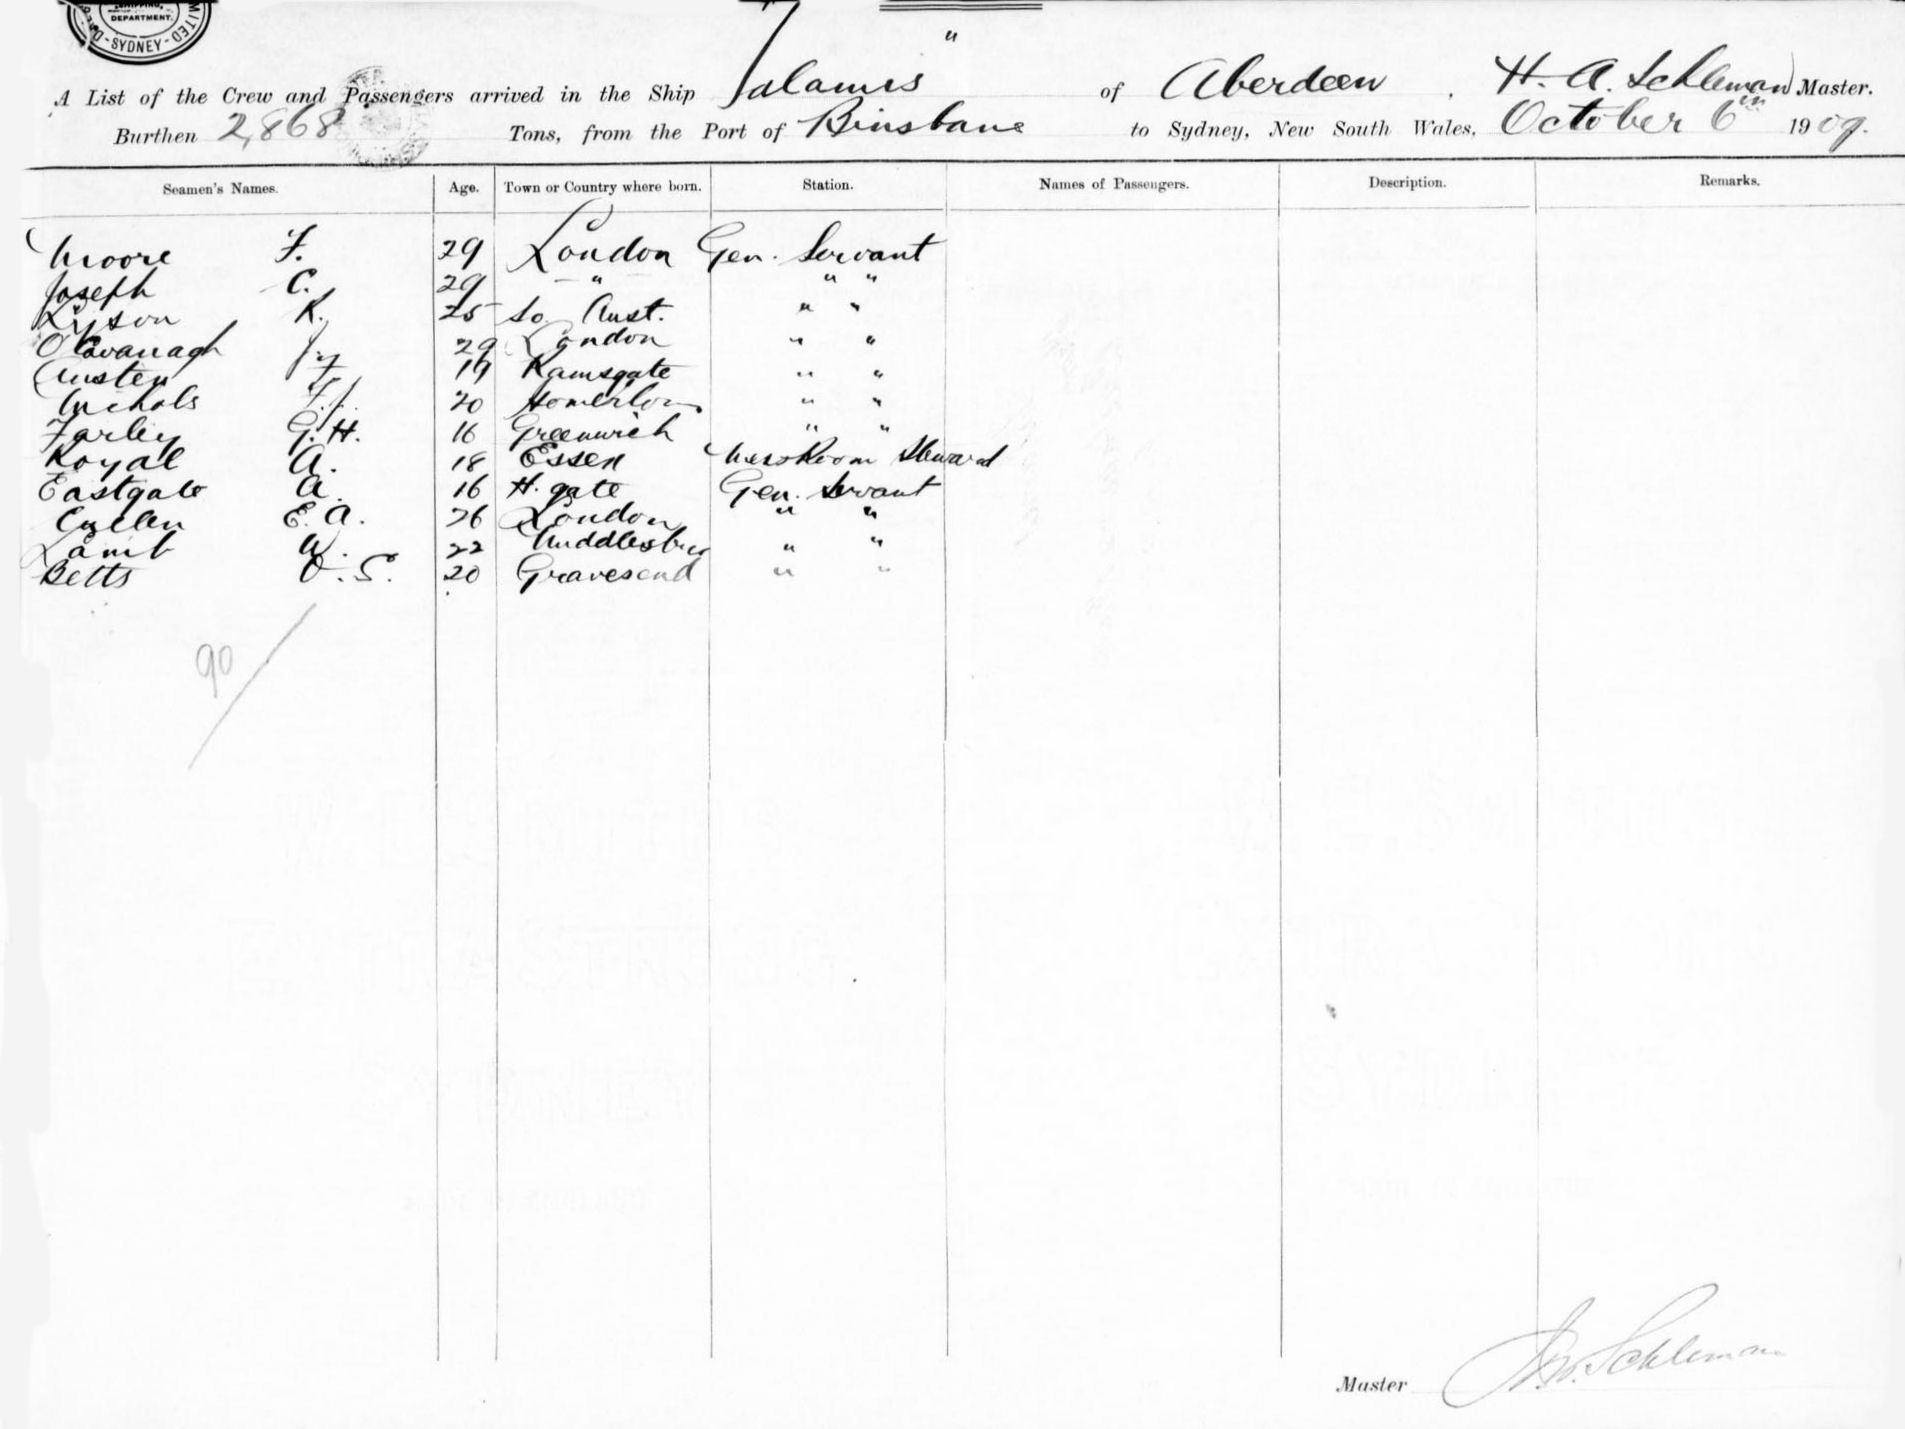 SHIPPING
DEPARTMENT.
SYDNEY
"
A List of the Crew and Passengers arrived in the Ship Salamis of Aberdeen, H. A. Schleman Master.
Burthen 2,868 Tons, from the Port of Brisbane to Sydney, New South Wales, October 6th 1909.
Seamen's Names. Age. Town or Country where born. Station. Names of Passengers. Description. Remarks.
Moore F. 29 London Gen. Servant
Joseph C. 29 " " "
K. 25 So. Aust. " "
O'Cavanagh J. 29 London " "
Austen F. 19 Ramsgate " "
Nichols F.J. 20 " "
Farley G. H. 16 Greenwich " "
Royal A. 18 Essex Mess Room Steward
Eastgate A. 16 H. gate Gen. Servant
E. A. 26 London " "
Lamb W. 22 Middlesbro " "
Betts V. S. 20 Gravesend " "
90
Master Schleman